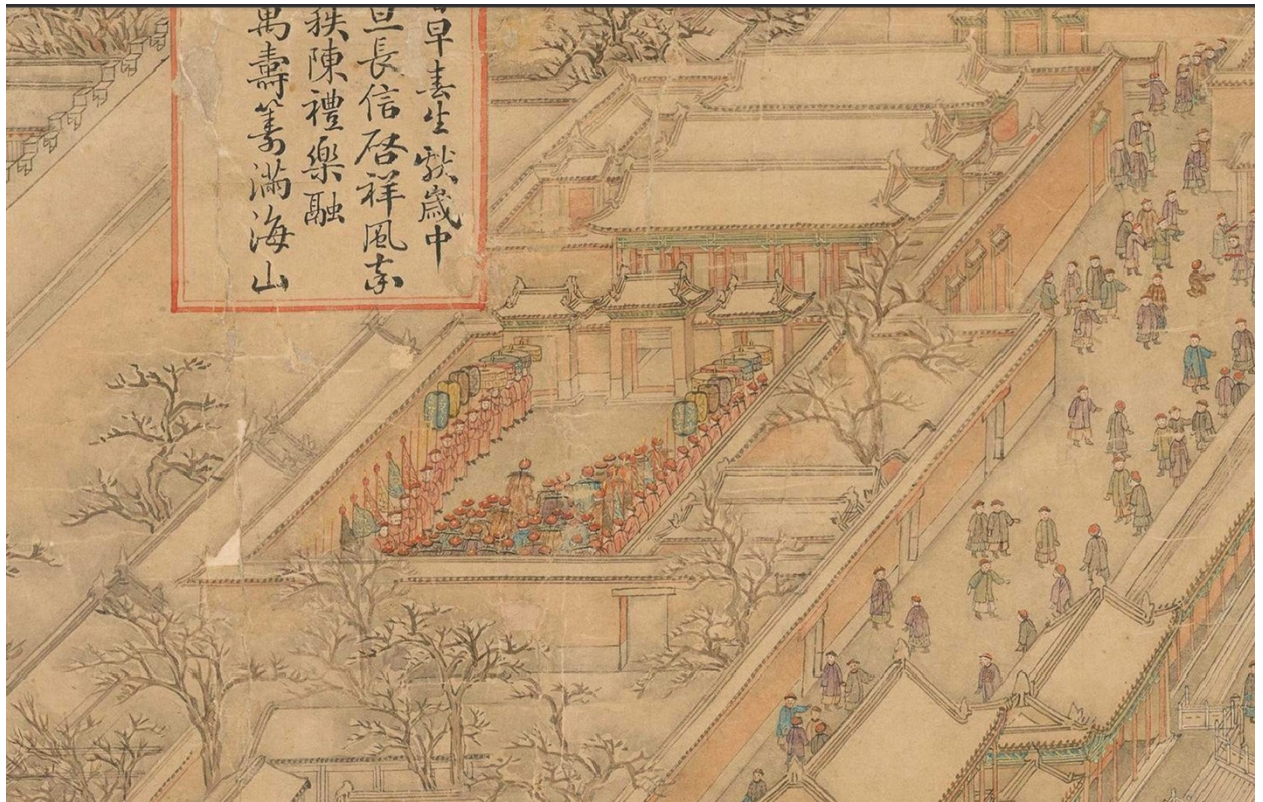 早春生獻歲中
旦長信啓祥風東
秩陳禮樂融
萬壽籌滿海山